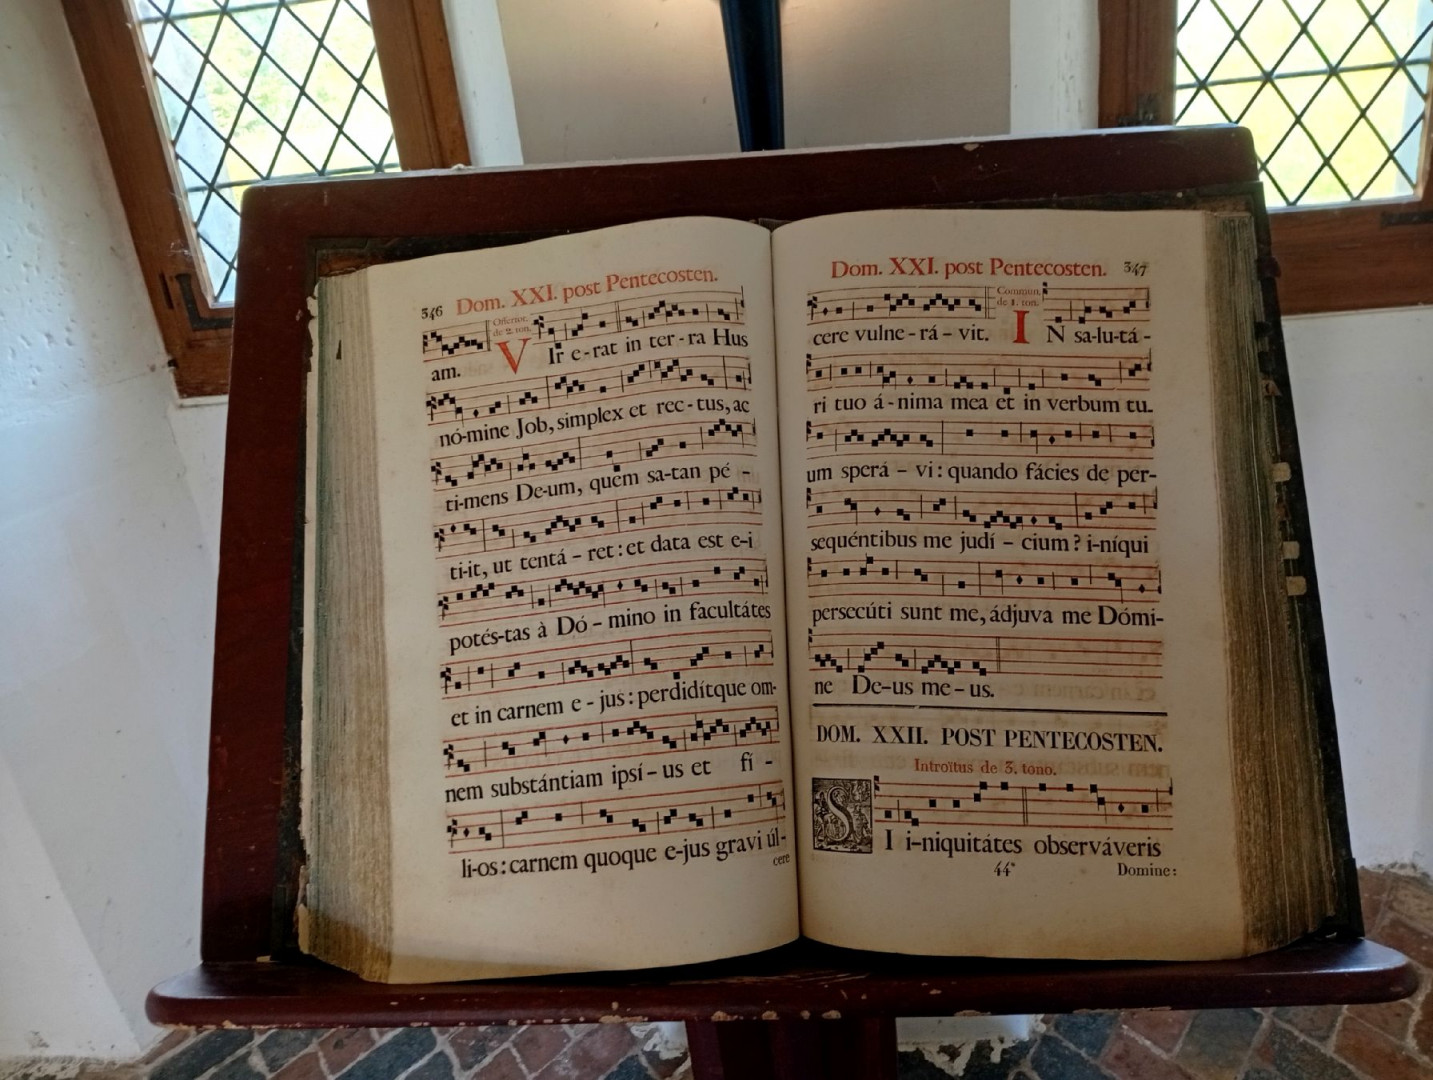 346 Dom. XXI. post Pentecosten.
Offertor.
de 2. ton.
am. VIr e-rat in ter-ra Hus
nó-mine Job, simplex et rec-tus, ac
ti-mens De-um, quem sa-tan pé -
ti-it, ut tentá - ret: et data est e-i
potés-tas à Dó - mino in facultátes
et in carnem e - jus: perdidítque om-
nem substántiam ipsí - us et fí -
li-os: carnem quoque e-jus gravi úl-
cere
Dom. XXI. post Pentecosten. 347
Commun.
de 1. ton.
cere vulne - rá - vit. IN sa-lu-tá -
ri tuo á - nima mea et in verbum tu-
um sperá - vi: quando fácies de per-
sequéntibus me judí - cium? i-níqui
persecúti sunt me, ádjuva me Dómi-
ne De-us me - us.
DOM. XXII. POST PENTECOSTEN.
Introïtus de 3. tono.
SI i-niquitátes observáveris
44* Domine: